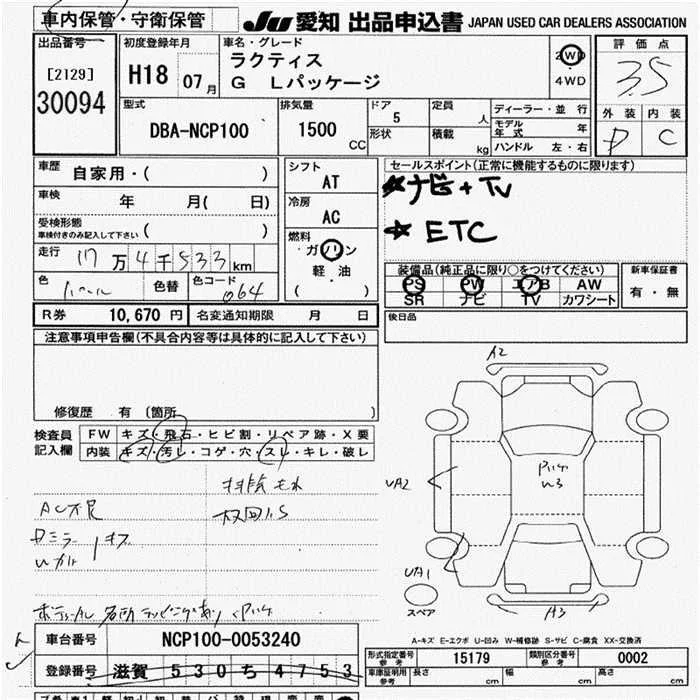 車内保管・守衛保管
JU 愛知 出品申込書 JAPAN USED CAR DEALERS ASSOCIATION
出品番号
[2129]
30094
初度登録年月
H18 07月
車名・グレード
ラクティス
G Lパッケージ
2WD
4WD
評価点
3.5
外装 内装
D C
型式
DBA-NCP100
排気量
1500
CC
ドア
5
形状
定員
人
積載
kg
ディーラー・並行
モデル年式 年
ハンドル 左・右
車歴
自家用・( )
車検
年 月( 日)
受検形態
車検付きのみ記入して下さい ( )
走行
万4千533km
色
色替
色コード
064
シフト
AT
冷房
AC
燃料
ガソリン
軽・油
( )
セールスポイント(正常に機能するものに限ります)
★ナビ+TV
★ETC
装備品(純正品に限り○をつけてください)
PS PW エアB AW
SR ナビ TV カワシート
新車保証書
有・無
後日品
R券 10,670 円 名変通知期限 月 日
注意事項申告欄(不具合内容等は具体的に記入して下さい)
修復歴 有 (箇所 )
検査員記入欄
FW キズ・飛石・ヒビ割・リペア跡・X要
内装 キズ・汚レ・コゲ・穴・スレ・キレ・破レ
AC不良
A2
UA2
UA1
スペア
A3
A-キズ E-エクボ U-凹み W-補修跡 S-サビ C-腐食 XX-交換済
車台番号 NCP100-0053240
登録番号 滋賀 530 ち 4753
型式指定番号 参考 15179
類別区分番号 参考 0002
車庫証明用 参考 長さ cm 幅 cm 高さ cm